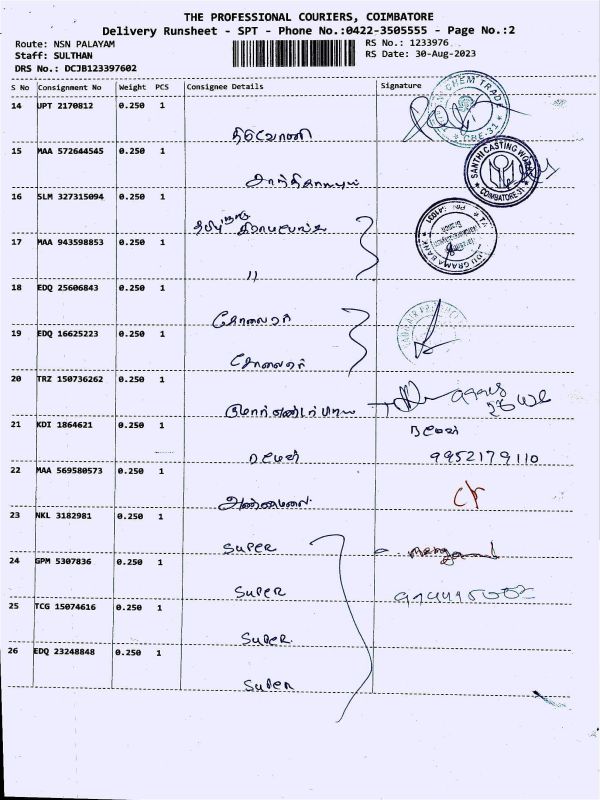 THE PROFESSIONAL COURIERS, COIMBATORE
Delivery Runsheet - SPT - Phone No.:0422-3505555 - Page No.:2
Route: NSN PALAYAM
RS No.: 1233976
Staff: SULTHAN
RS Date: 30-Aug-2023
DRS No.: DCJB123397602
S No Consignment No Weight PCS Consignee Details Signature
14 UPT 2170812 0.250 1
CHEM TRADE
CBE-31
15 MAA 572644545 0.250 1
SANTHI CASTING WORKS
COIMBATORE-31
16 SLM 327315094 0.250 1
தமிழ்நாடு
கிராமபேங்க்
GRAMA BANK
17 MAA 943598853 0.250 1
11
18 EDQ 25606843 0.250 1
19 EDQ 16625223 0.250 1
20 TRZ 150736262 0.250 1
21 KDI 1864621 0.250 1
ரமேஷ்
ரமேஷ்
9952179110
22 MAA 569580573 0.250 1
அண்ணாமலை
23 NKL 3182981 0.250 1
Super
24 GPM 5307836 0.250 1
Super
25 TCG 15074616 0.250 1
Super
26 EDQ 23248848 0.250 1
Super